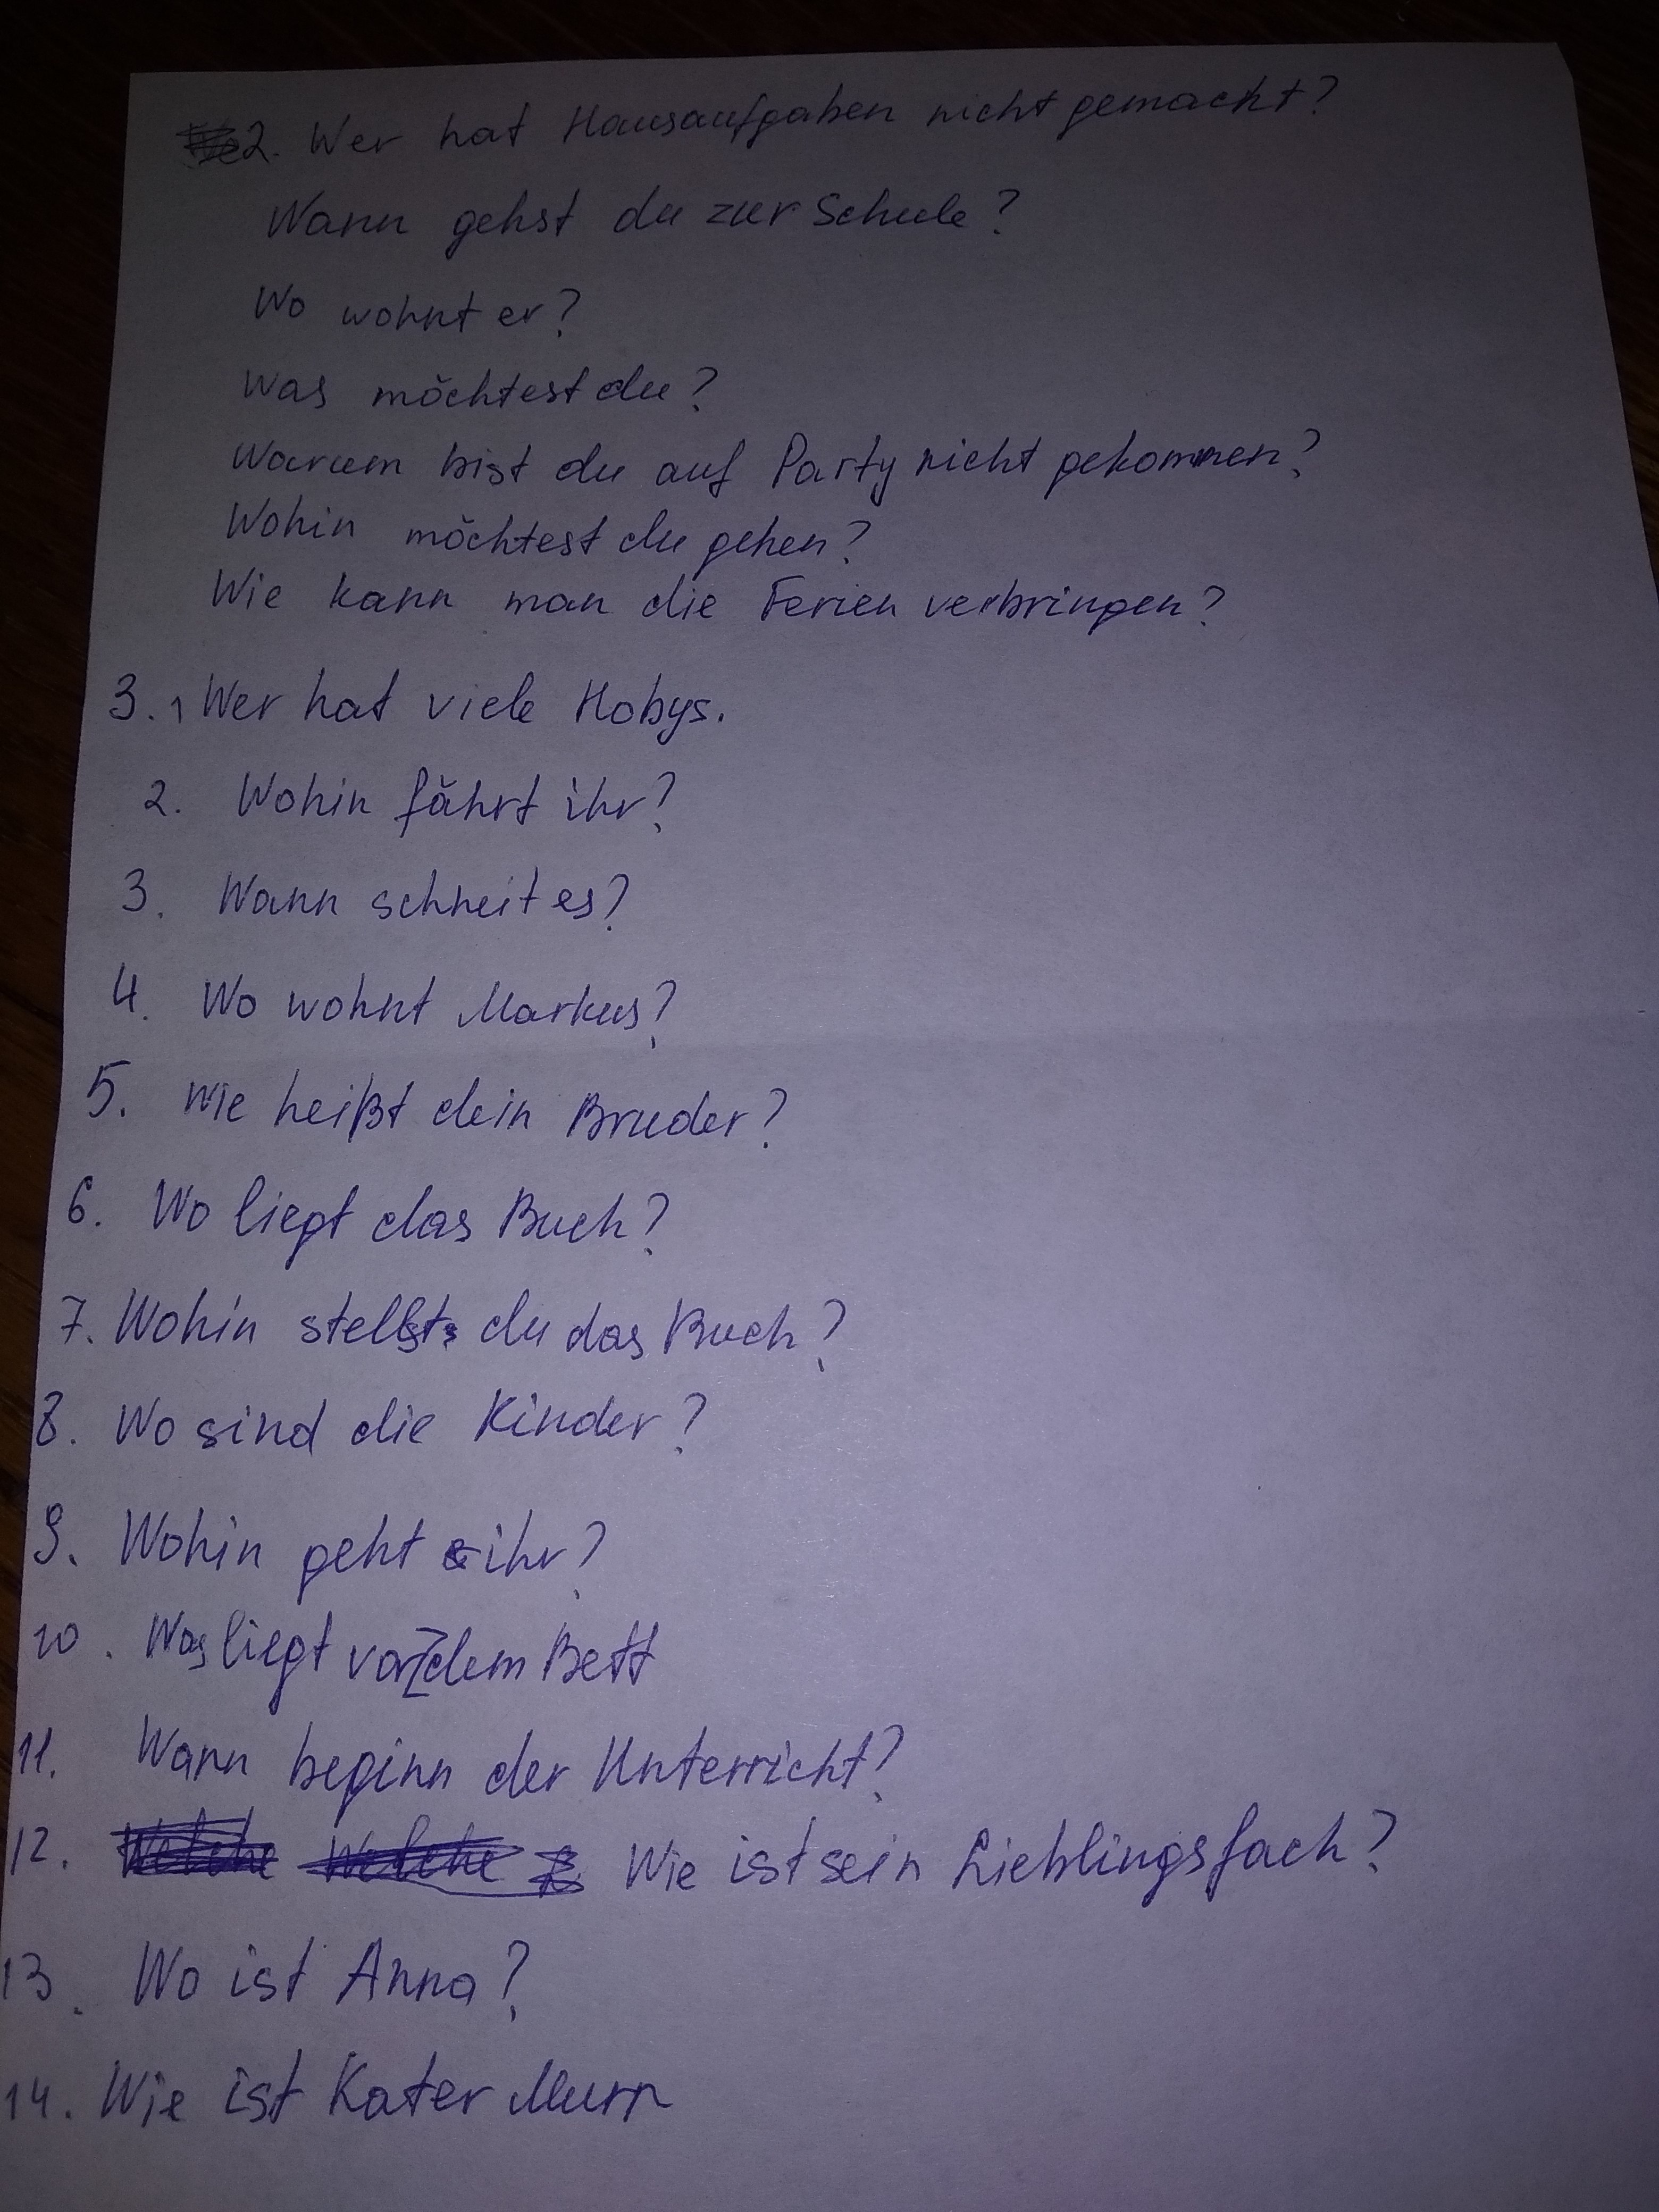 2. Wer hat Hausaufgaben nicht gemacht?
Wann gehst du zur Schule?
Wo wohnt er?
Was möchtest du?
Warum bist du auf Party nicht gekommen?
Wohin möchtest du gehen?
Wie kann man die Ferien verbringen?
3. 1 Wer hat viele Hobys.
2. Wohin fährt ihr?
3. Wann schneit es?
4. Wo wohnt Markus?
5. Wie heißt dein Bruder?
6. Wo liegt das Buch?
7. Wohin stellst du das Buch?
8. Wo sind die Kinder?
9. Wohin geht ihr?
10. Was liegt vor dem Bett
11. Wann beginn der Unterricht?
12. Wie ist sein Lieblingsfach?
13. Wo ist Anna?
14. Wie ist Kater Murr